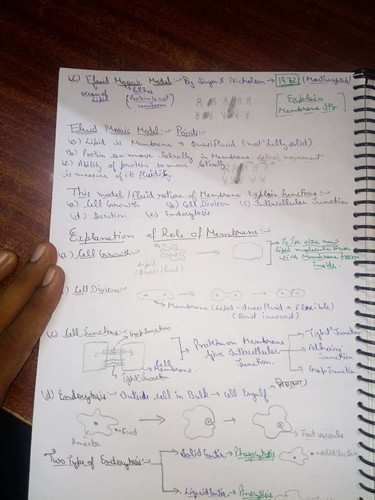 (c) Fluid Mosaic Model:- By Singer & Nicholson → 1972 (Most accepted)
ocean of Lipid
(Protein is not uniform)
[Explain Membrane
Fluid Mosaic Model:- Points:-
(a) Lipid is Membrane → Quasifluid (not fully solid)
(b) Protein can move laterally in Membrane lateral movement
(c) Ability of protein to move laterally
is measure of its fluidity
This model / Fluid nature of Membrane Explain functions:-
(a) Cell Growth (b) Cell Division (c) Intercellular Junction
(d) Secretion (e) Endocytosis
Explanation of Role of Membrane:-
(a) Cell Growth:-
Lipid (Quasifluid)
size
Lipid molecule
with Membrane from
inside
Cell Division:-
Membrane (Lipid - Quasifluid + flexible)
(Bend inward)
(c) Cell Junction:- Gap Junction
Cell Membrane
Tight Junction
Protein on Membrane
Give Intercellular
Junction
Tight Junction
Adhering Junction
Gap Junction
(d) Endocytosis:- Outside Cell in Bulk → Cell Engulf
Amoeba
Food
Food vacuole
Two Types of Endocytosis:-
Solid Eating → Phagocytosis
Liquid Eating → Pinocytosis